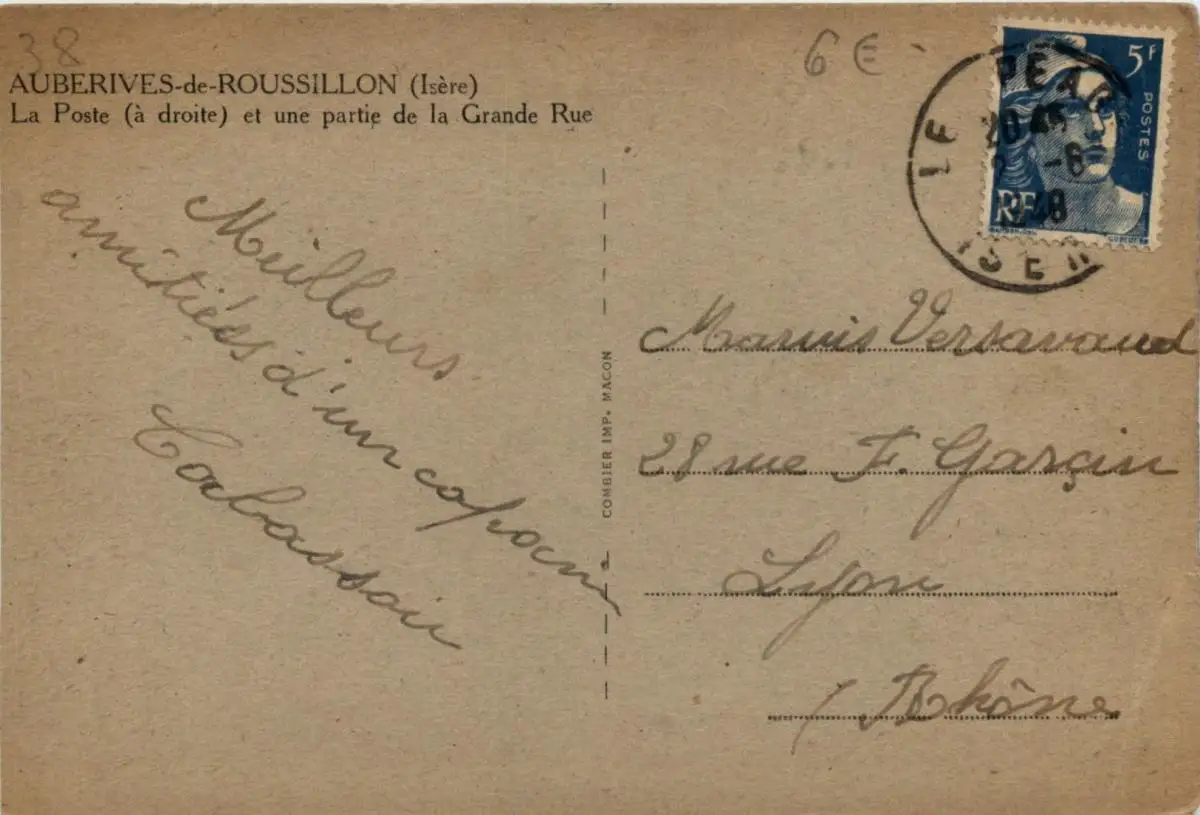 38
6€
AUBERIVES-de-ROUSSILLON (Isère)
La Poste (à droite) et une partie de la Grande Rue
5F
POSTES
RF
LE PEAG
20 45
-6
1948
ISERE
Meilleurs
amitiés d'un copain
Cabassoir
COMBIER IMP. MACON
Marius Versavaud
28 rue F. Garçin
Lyon
(Rhône